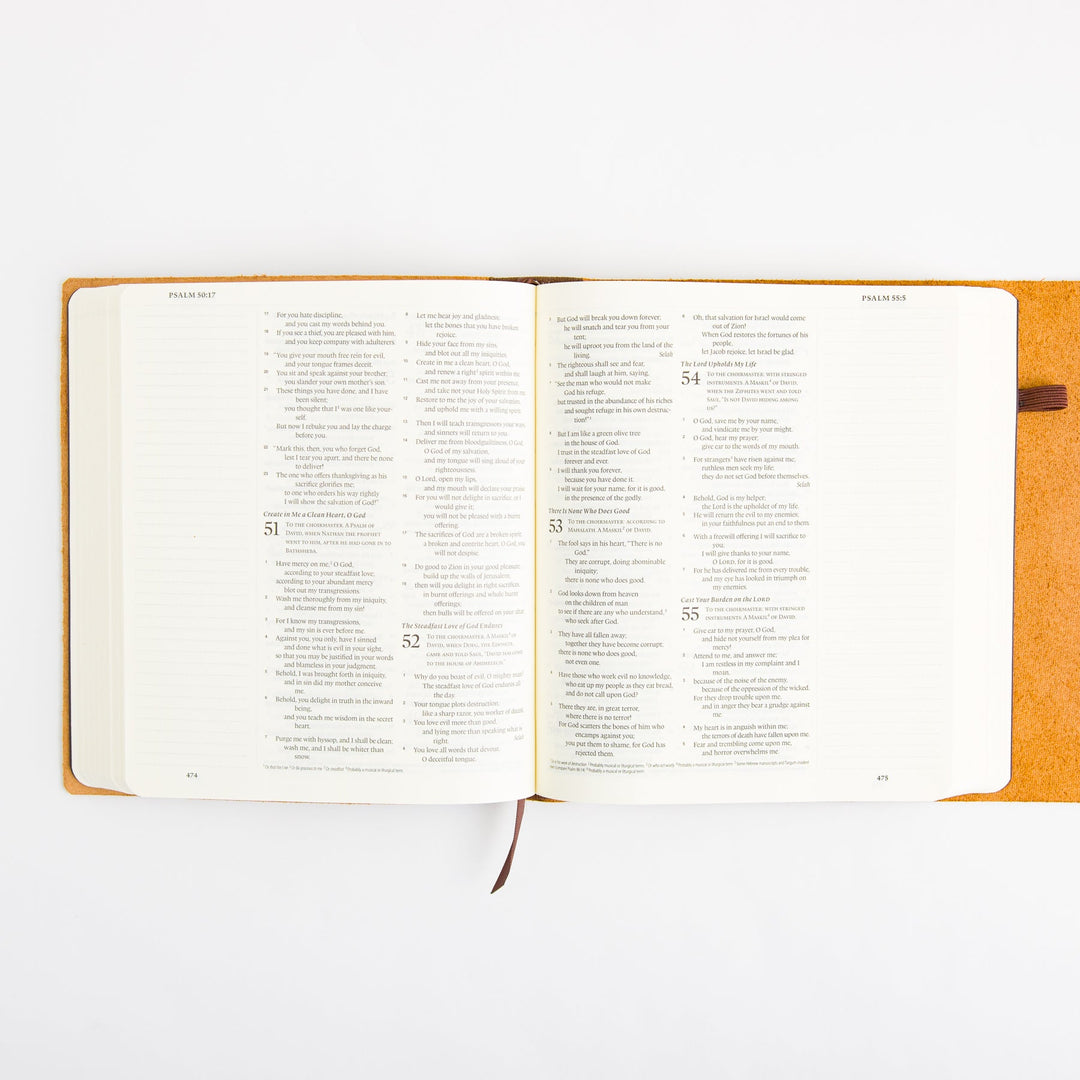 PSALM 50:17
17 For you hate discipline,
and you cast my words behind you.
18 If you see a thief, you are pleased with him,
and you keep company with adulterers.
19 “You give your mouth free rein for evil,
and your tongue frames deceit.
20 You sit and speak against your brother;
you slander your own mother’s son.
21 These things you have done, and I have
been silent;
you thought that I¹ was one like your-
self.
But now I rebuke you and lay the charge
before you.
22 “Mark this, then, you who forget God,
lest I tear you apart, and there be none
to deliver!
23 The one who offers thanksgiving as his
sacrifice glorifies me;
to one who orders his way rightly
I will show the salvation of God!”
Create in Me a Clean Heart, O God
51 TO THE CHOIRMASTER. A PSALM OF
DAVID, WHEN NATHAN THE PROPHET
WENT TO HIM, AFTER HE HAD GONE IN TO
BATHSHEBA.
1 Have mercy on me,² O God,
according to your steadfast love;
according to your abundant mercy
blot out my transgressions.
2 Wash me thoroughly from my iniquity,
and cleanse me from my sin!
3 For I know my transgressions,
and my sin is ever before me.
4 Against you, you only, have I sinned
and done what is evil in your sight,
so that you may be justified in your words
and blameless in your judgment.
5 Behold, I was brought forth in iniquity,
and in sin did my mother conceive
me.
6 Behold, you delight in truth in the inward
being,
and you teach me wisdom in the secret
heart.
7 Purge me with hyssop, and I shall be clean;
wash me, and I shall be whiter than
snow.
8 Let me hear joy and gladness;
let the bones that you have broken
rejoice.
9 Hide your face from my sins,
and blot out all my iniquities.
10 Create in me a clean heart, O God,
and renew a right³ spirit within me.
11 Cast me not away from your presence,
and take not your Holy Spirit from me.
12 Restore to me the joy of your salvation,
and uphold me with a willing spirit.
13 Then I will teach transgressors your ways,
and sinners will return to you.
14 Deliver me from bloodguiltiness, O God,
O God of my salvation,
and my tongue will sing aloud of your
righteousness.
15 O Lord, open my lips,
and my mouth will declare your praise.
16 For you will not delight in sacrifice, or I
would give it;
you will not be pleased with a burnt
offering.
17 The sacrifices of God are a broken spirit;
a broken and contrite heart, O God, you
will not despise.
18 Do good to Zion in your good pleasure;
build up the walls of Jerusalem;
19 then will you delight in right sacrifices,
in burnt offerings and whole burnt
offerings;
then bulls will be offered on your altar.
The Steadfast Love of God Endures
52 TO THE CHOIRMASTER. A MASKIL⁴ OF
DAVID, WHEN DOEG, THE EDOMITE,
CAME AND TOLD SAUL, “DAVID HAS COME
TO THE HOUSE OF AHIMELECH.”
1 Why do you boast of evil, O mighty man?
The steadfast love of God endures all
the day.
2 Your tongue plots destruction,
like a sharp razor, you worker of deceit.
3 You love evil more than good,
and lying more than speaking what is
right. Selah
4 You love all words that devour,
O deceitful tongue.
474
PSALM 55:5
5 But God will break you down forever;
he will snatch and tear you from your
tent;
he will uproot you from the land of the
living. Selah
6 The righteous shall see and fear,
and shall laugh at him, saying,
7 “See the man who would not make
God his refuge,
but trusted in the abundance of his riches
and sought refuge in his own destruc-
tion!”¹
8 But I am like a green olive tree
in the house of God.
I trust in the steadfast love of God
forever and ever.
9 I will thank you forever,
because you have done it.
I will wait for your name, for it is good,
in the presence of the godly.
There Is None Who Does Good
53 TO THE CHOIRMASTER: ACCORDING TO
MAHALATH. A MASKIL² OF DAVID.
1 The fool says in his heart, “There is no
God.”
They are corrupt, doing abominable
iniquity;
there is none who does good.
2 God looks down from heaven
on the children of man
to see if there are any who understand,³
who seek after God.
3 They have all fallen away;
together they have become corrupt;
there is none who does good,
not even one.
4 Have those who work evil no knowledge,
who eat up my people as they eat bread,
and do not call upon God?
5 There they are, in great terror,
where there is no terror!
For God scatters the bones of him who
encamps against you;
you put them to shame, for God has
rejected them.
6 Oh, that salvation for Israel would come
out of Zion!
When God restores the fortunes of his
people,
let Jacob rejoice, let Israel be glad.
The Lord Upholds My Life
54 TO THE CHOIRMASTER: WITH STRINGED
INSTRUMENTS. A MASKIL⁴ OF DAVID,
WHEN THE ZIPHITES WENT AND TOLD
SAUL, “IS NOT DAVID HIDING AMONG
US?”
1 O God, save me by your name,
and vindicate me by your might.
2 O God, hear my prayer;
give ear to the words of my mouth.
3 For strangers⁵ have risen against me;
ruthless men seek my life;
they do not set God before themselves.
Selah
4 Behold, God is my helper;
the Lord is the upholder of my life.
5 He will return the evil to my enemies;
in your faithfulness put an end to them.
6 With a freewill offering I will sacrifice to
you;
I will give thanks to your name,
O LORD, for it is good.
7 For he has delivered me from every trouble,
and my eye has looked in triumph on
my enemies.
Cast Your Burden on the LORD
55 TO THE CHOIRMASTER: WITH STRINGED
INSTRUMENTS. A MASKIL⁶ OF DAVID.
1 Give ear to my prayer, O God,
and hide not yourself from my plea for
mercy!
2 Attend to me, and answer me;
I am restless in my complaint and I
moan,
3 because of the noise of the enemy,
because of the oppression of the wicked.
For they drop trouble upon me,
and in anger they bear a grudge against
me.
4 My heart is in anguish within me;
the terrors of death have fallen upon me.
5 Fear and trembling come upon me,
and horror overwhelms me.
475